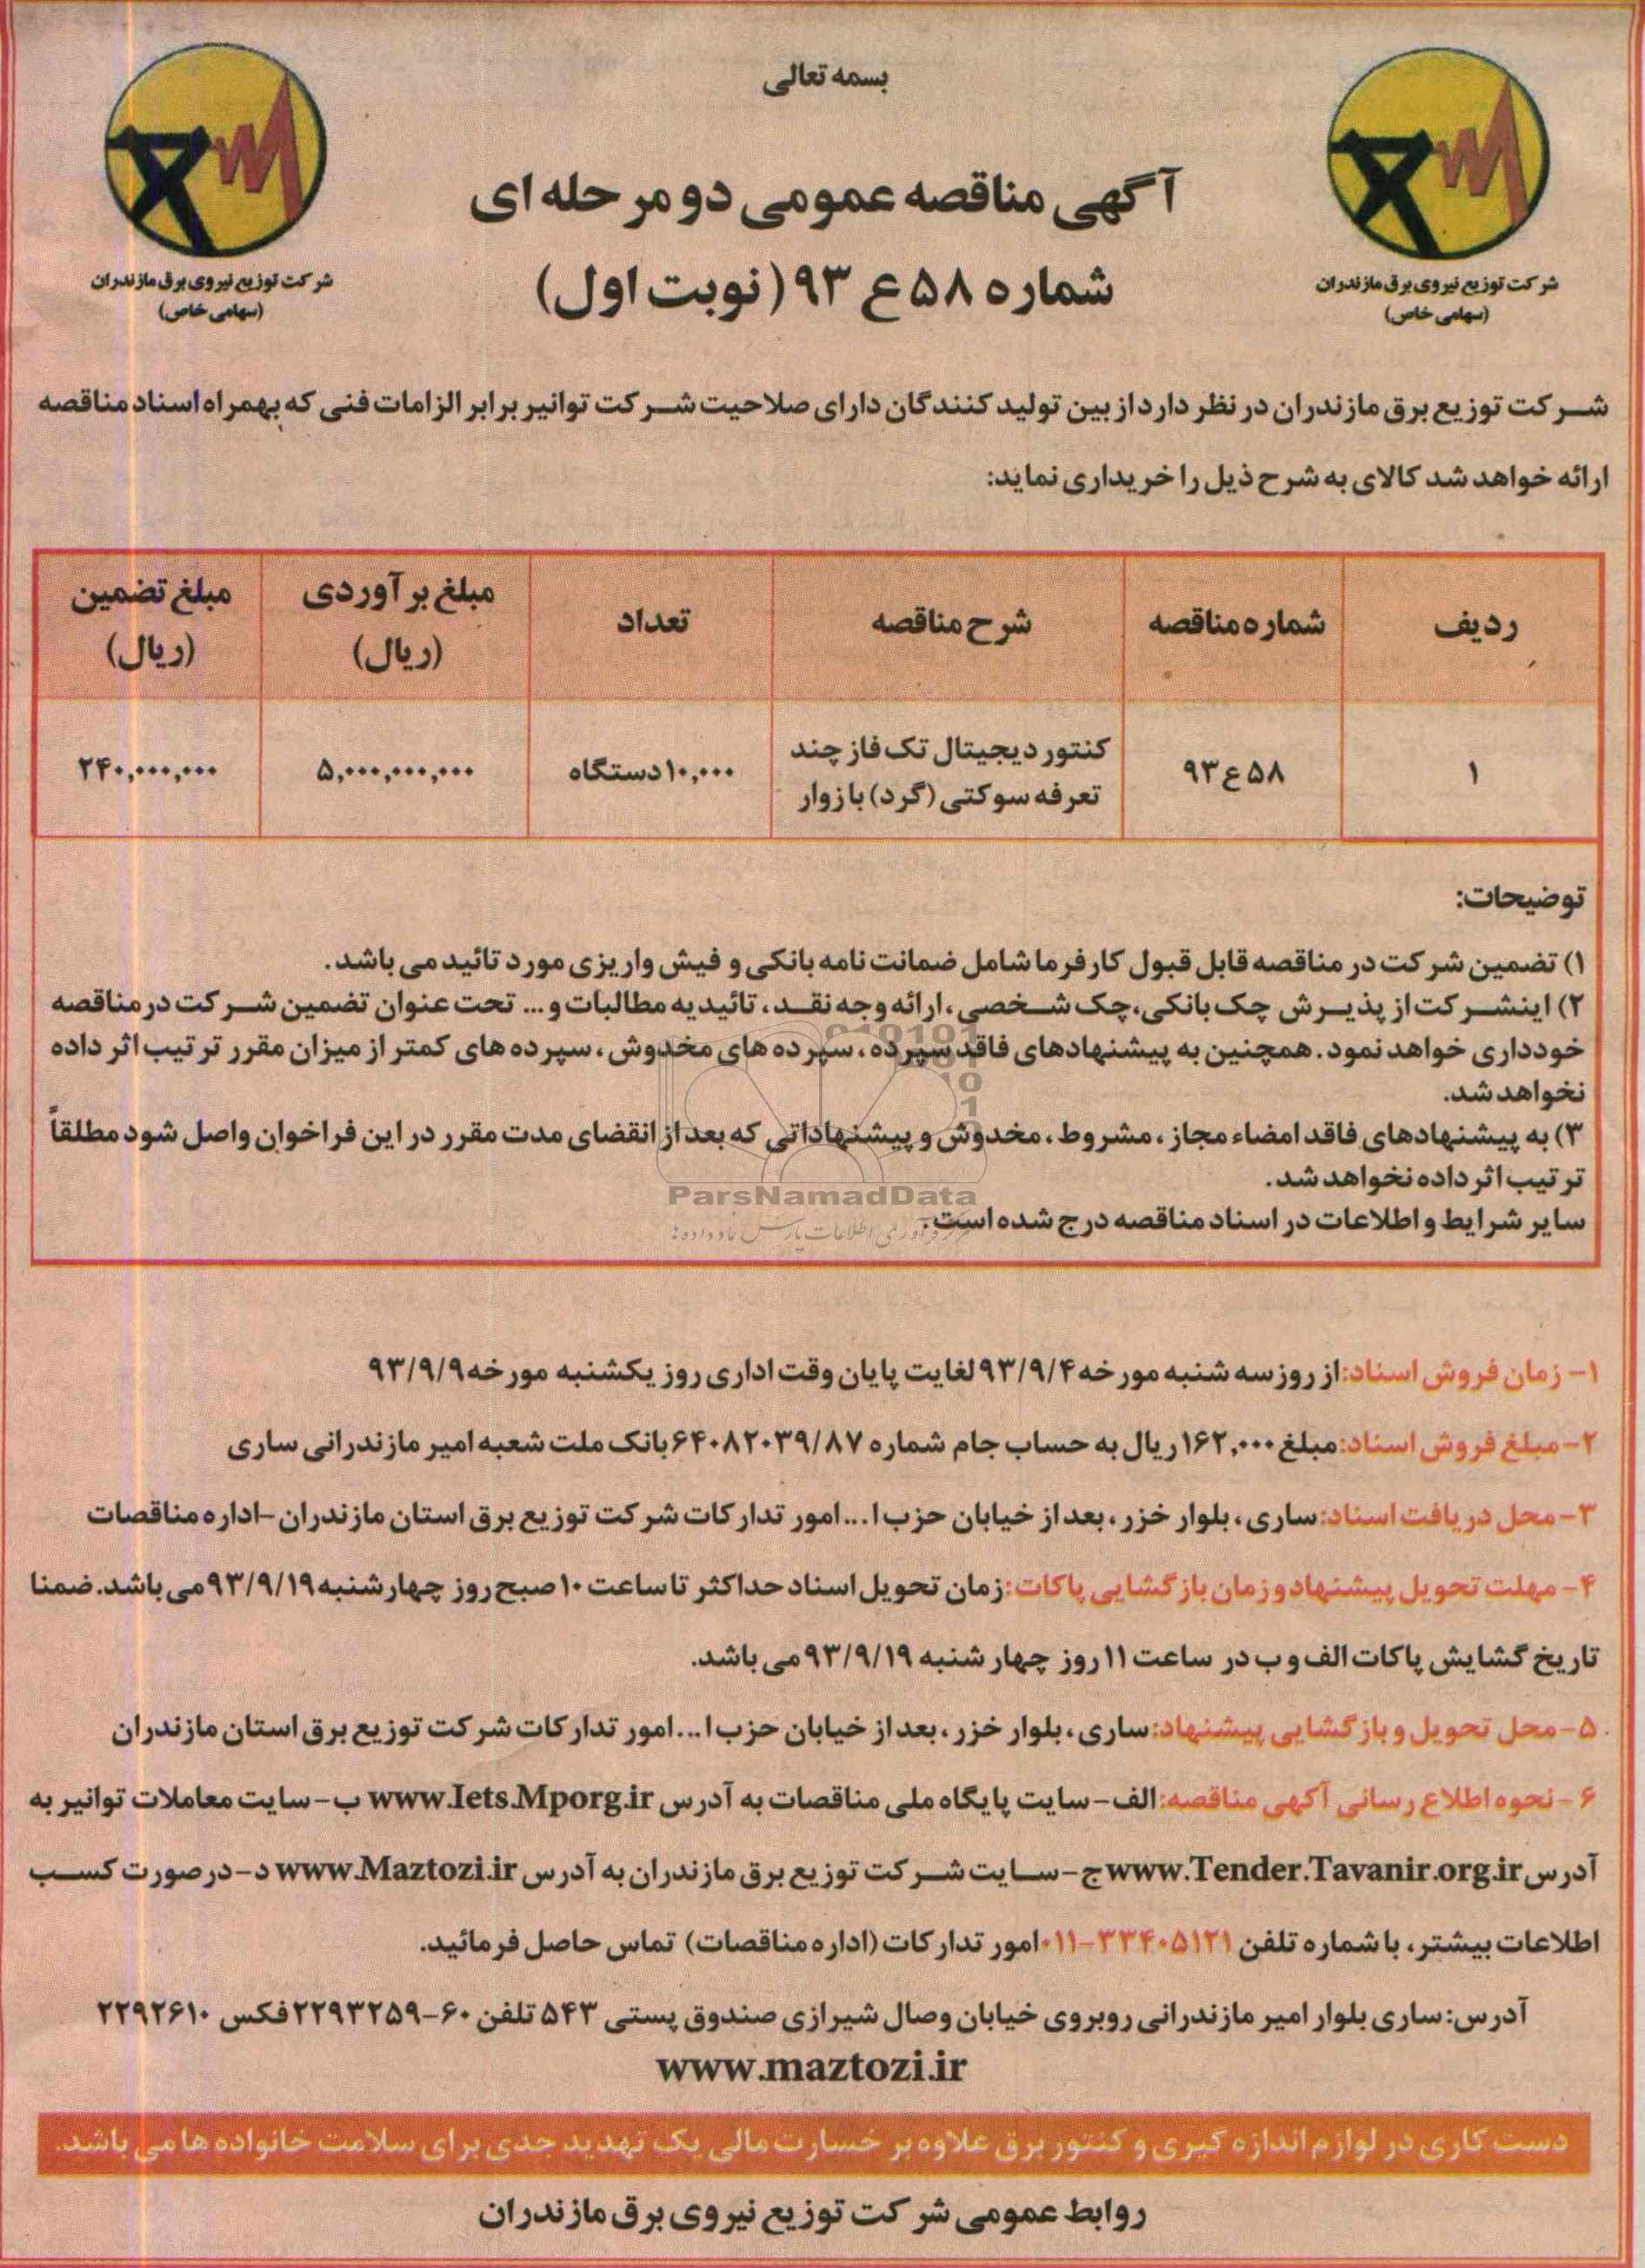 بسمه تعالی
آگهی مناقصه عمومی دو مرحله ای
شماره ۵۸ع ۹۳ (نوبت اول)
شرکت توزیع نیروی برق مازندران
(سهامی خاص)
شرکت توزیع نیروی برق مازندران
(سهامی خاص)
شرکت توزیع برق مازندران در نظر دارد از بین تولید کنندگان دارای صلاحیت شرکت توانیر برابر الزامات فنی که بهمراه اسناد مناقصه
ارائه خواهد شد کالای به شرح ذیل را خریداری نماید:
ردیف شماره مناقصه شرح مناقصه تعداد مبلغ برآوردی (ریال) مبلغ تضمین (ریال)
۱ ۵۸ع۹۳ کنتور دیجیتال تک فاز چند تعرفه سوکتی (گرد) بازوار ۱۰,۰۰۰دستگاه ۵,۰۰۰,۰۰۰,۰۰۰ ۲۴۰,۰۰۰,۰۰۰
توضیحات:
۱) تضمین شرکت در مناقصه قابل قبول کارفرما شامل ضمانت نامه بانکی و فیش واریزی مورد تائید می باشد.
۲) اینشرکت از پذیرش چک بانکی، چک شخصی، ارائه وجه نقد، تائیدیه مطالبات و... تحت عنوان تضمین شرکت در مناقصه
خودداری خواهد نمود. همچنین به پیشنهادهای فاقد سپرده، سپرده های مخدوش، سپرده های کمتر از میزان مقرر ترتیب اثر داده
نخواهد شد.
۳) به پیشنهادهای فاقد امضاء مجاز، مشروط، مخدوش و پیشنهاداتی که بعد از انقضای مدت مقرر در این فراخوان واصل شود مطلقاً
ترتیب اثر داده نخواهد شد.
سایر شرایط و اطلاعات در اسناد مناقصه درج شده است.
ParsNamadData
۱- زمان فروش اسناد: از روز سه شنبه مورخه ۹۳/۹/۴ لغایت پایان وقت اداری روز یکشنبه مورخه ۹۳/۹/۹
۲- مبلغ فروش اسناد: مبلغ ۱۶۲,۰۰۰ ریال به حساب جام شماره ۶۴۰۸۲۰۳۹/۸۷ بانک ملت شعبه امیر مازندرانی ساری
۳- محل دریافت اسناد: ساری، بلوار خزر، بعد از خیابان حزب ا... امور تدارکات شرکت توزیع برق استان مازندران -اداره مناقصات
۴- مهلت تحویل پیشنهاد و زمان بازگشایی پاکات: زمان تحویل اسناد حداکثر تا ساعت ۱۰ صبح روز چهارشنبه ۹۳/۹/۱۹ می باشد. ضمنا
تاریخ گشایش پاکات الف و ب در ساعت ۱۱ روز چهار شنبه ۹۳/۹/۱۹ می باشد.
۵- محل تحویل و بازگشایی پیشنهاد: ساری، بلوار خزر، بعد از خیابان حزب ا... امور تدارکات شرکت توزیع برق استان مازندران
۶- نحوه اطلاع رسانی آگهی مناقصه: الف- سایت پایگاه ملی مناقصات به آدرس www.Iets.Mporg.ir ب- سایت معاملات توانیر به
آدرس www.Tender.Tavanir.org.ir ج- سایت شرکت توزیع برق مازندران به آدرس www.Maztozi.ir د- در صورت کسب
اطلاعات بیشتر، با شماره تلفن ۳۳۴۰۵۱۲۱-۰۱۱ امور تدارکات (اداره مناقصات) تماس حاصل فرمائید.
آدرس: ساری بلوار امیر مازندرانی روبروی خیابان وصال شیرازی صندوق پستی ۵۴۳ تلفن ۶۰-۲۲۹۳۲۵۹ فکس ۲۲۹۲۶۱۰
www.maztozi.ir
دست کاری در لوازم اندازه گیری و کنتور برق علاوه بر خسارت مالی یک تهدید جدی برای سلامت خانواده ها می باشد.
روابط عمومی شرکت توزیع نیروی برق مازندران